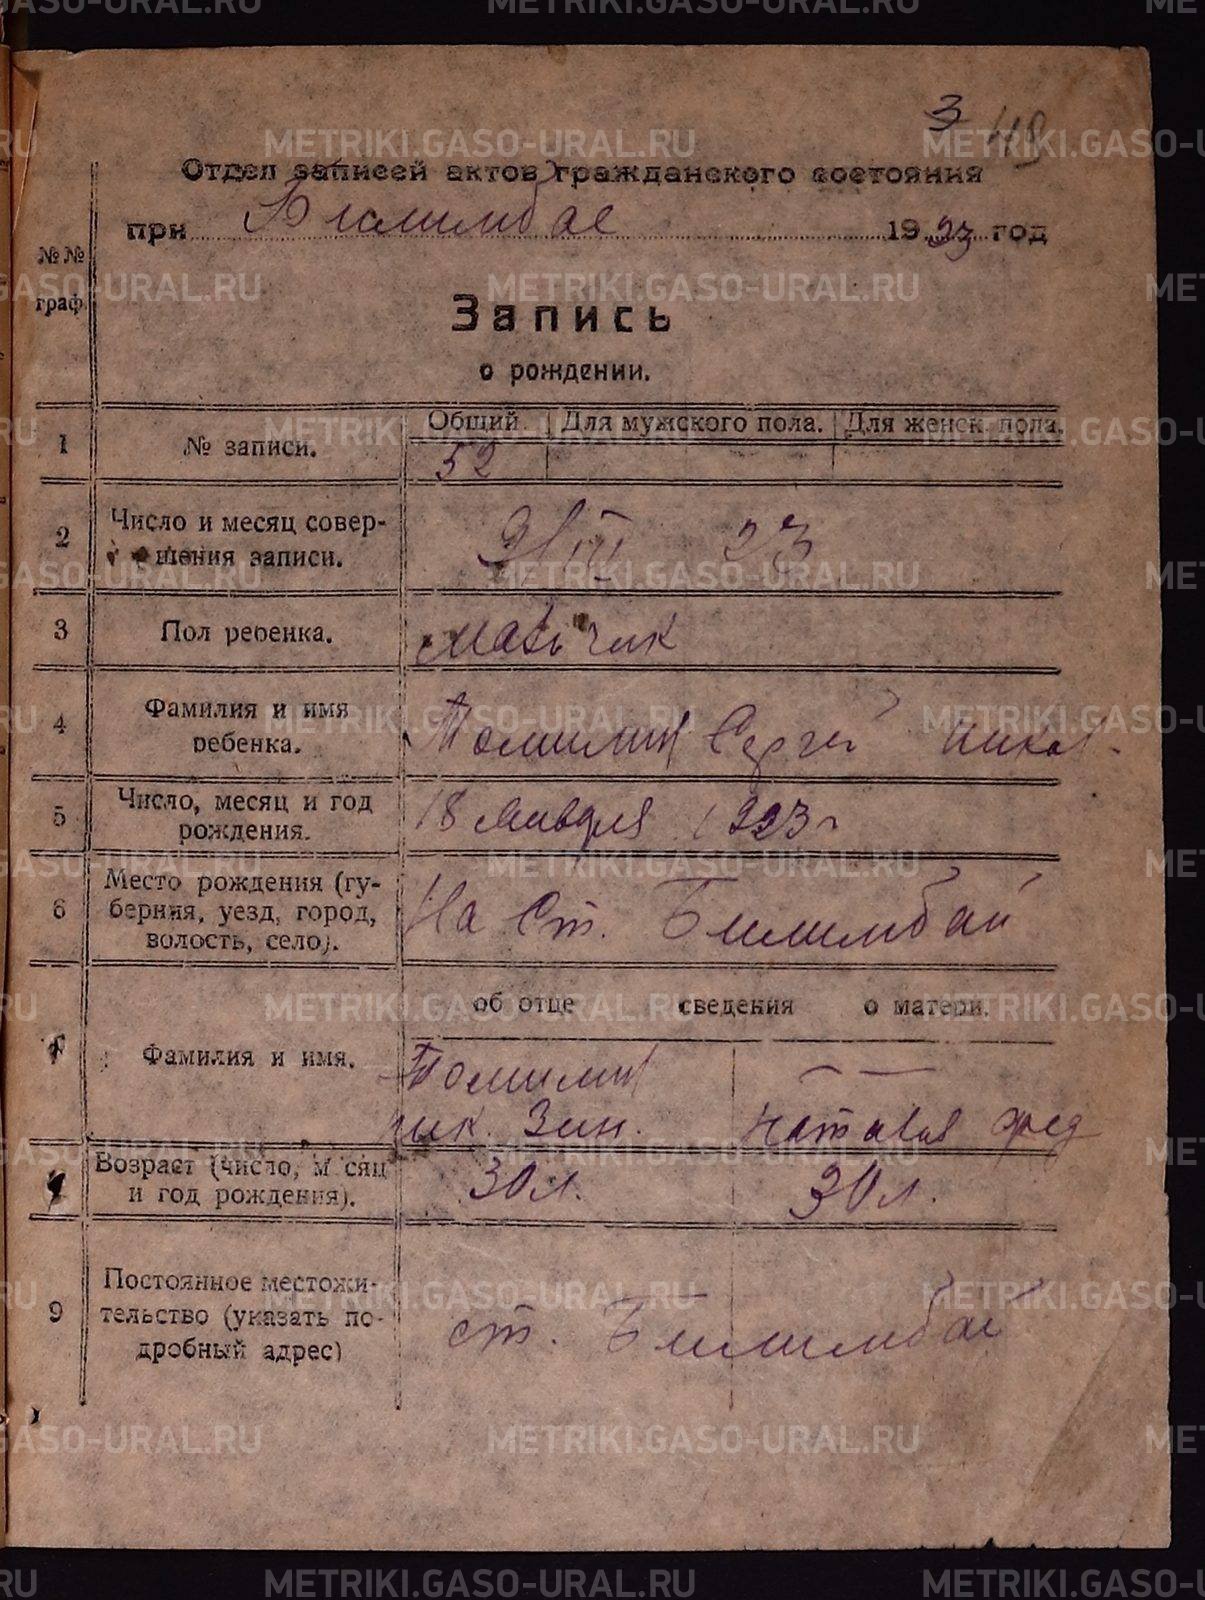 METRIKI.GASO-URAL.RU
3
Отдел записей актов гражданского состояния
при Билимбае 1923 год
№№ граф.
Запись
о рождении.
1 № записи. Общий. Для мужского пола. Для женск. пола.
52
2 Число и месяц совершения записи. 23
3 Пол ребенка. мальчик
4 Фамилия и имя ребенка. Томилин Сергей Никол.
5 Число, месяц и год рождения. 18 января 1923 г
6 Место рождения (губерния, уезд, город, волость, село). На Ст. Билимбай
об отце сведения о матери.
Фамилия и имя. Томилин — —
Ник. Зин. Наталья Фед
Возраст (число, м сяц и год рождения). 30 л. 30 л.
9 Постоянное местожительство (указать подробный адрес) ст. Билимбай